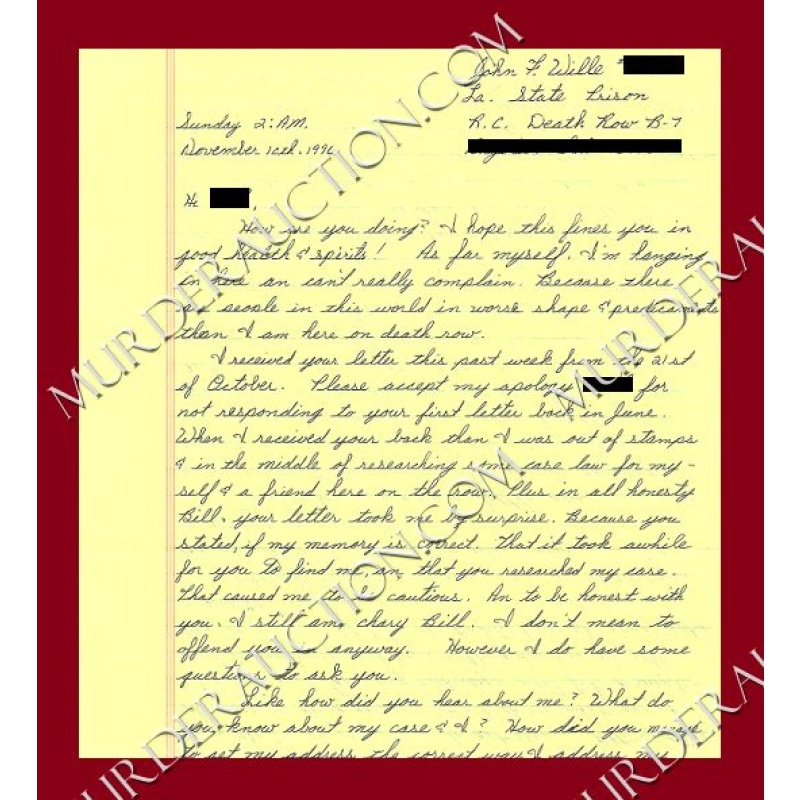 John F. Wille #
La. State Prison
Sunday 2: A.M. R.C. Death Row B-7
November 10th. 1996
Hi ,
How are you doing? I hope this fines you in
good health & spirits! As far myself. I'm hanging
in here an can't really complain. Because there
are people in this world in worse shape & predicaments
than I am here on death row.
I received your letter this past week from the 21st
of October. Please accept my apology for
not responding to your first letter back in June.
When I received your back than I was out of stamps
& in the middle of researching some case law for my-
self & a friend here on the row. Plus in all honesty
Bill, your letter took me by surprise. Because you
stated, if my memory is correct. That it took awhile
for you to find me, an that you researched my case.
That caused me to be cautious. An to be honest with
you. I still am chary Bill. I don't mean to
offend you in anyway. However I do have some
questions to ask you.
Like how did you hear about me? What do
you know about my case & I? How did you manage
to get my address the correct way I address my
MURDERAUCTION.COM
MURDERAUCTION.COM
MURDERAU
MURDERAU